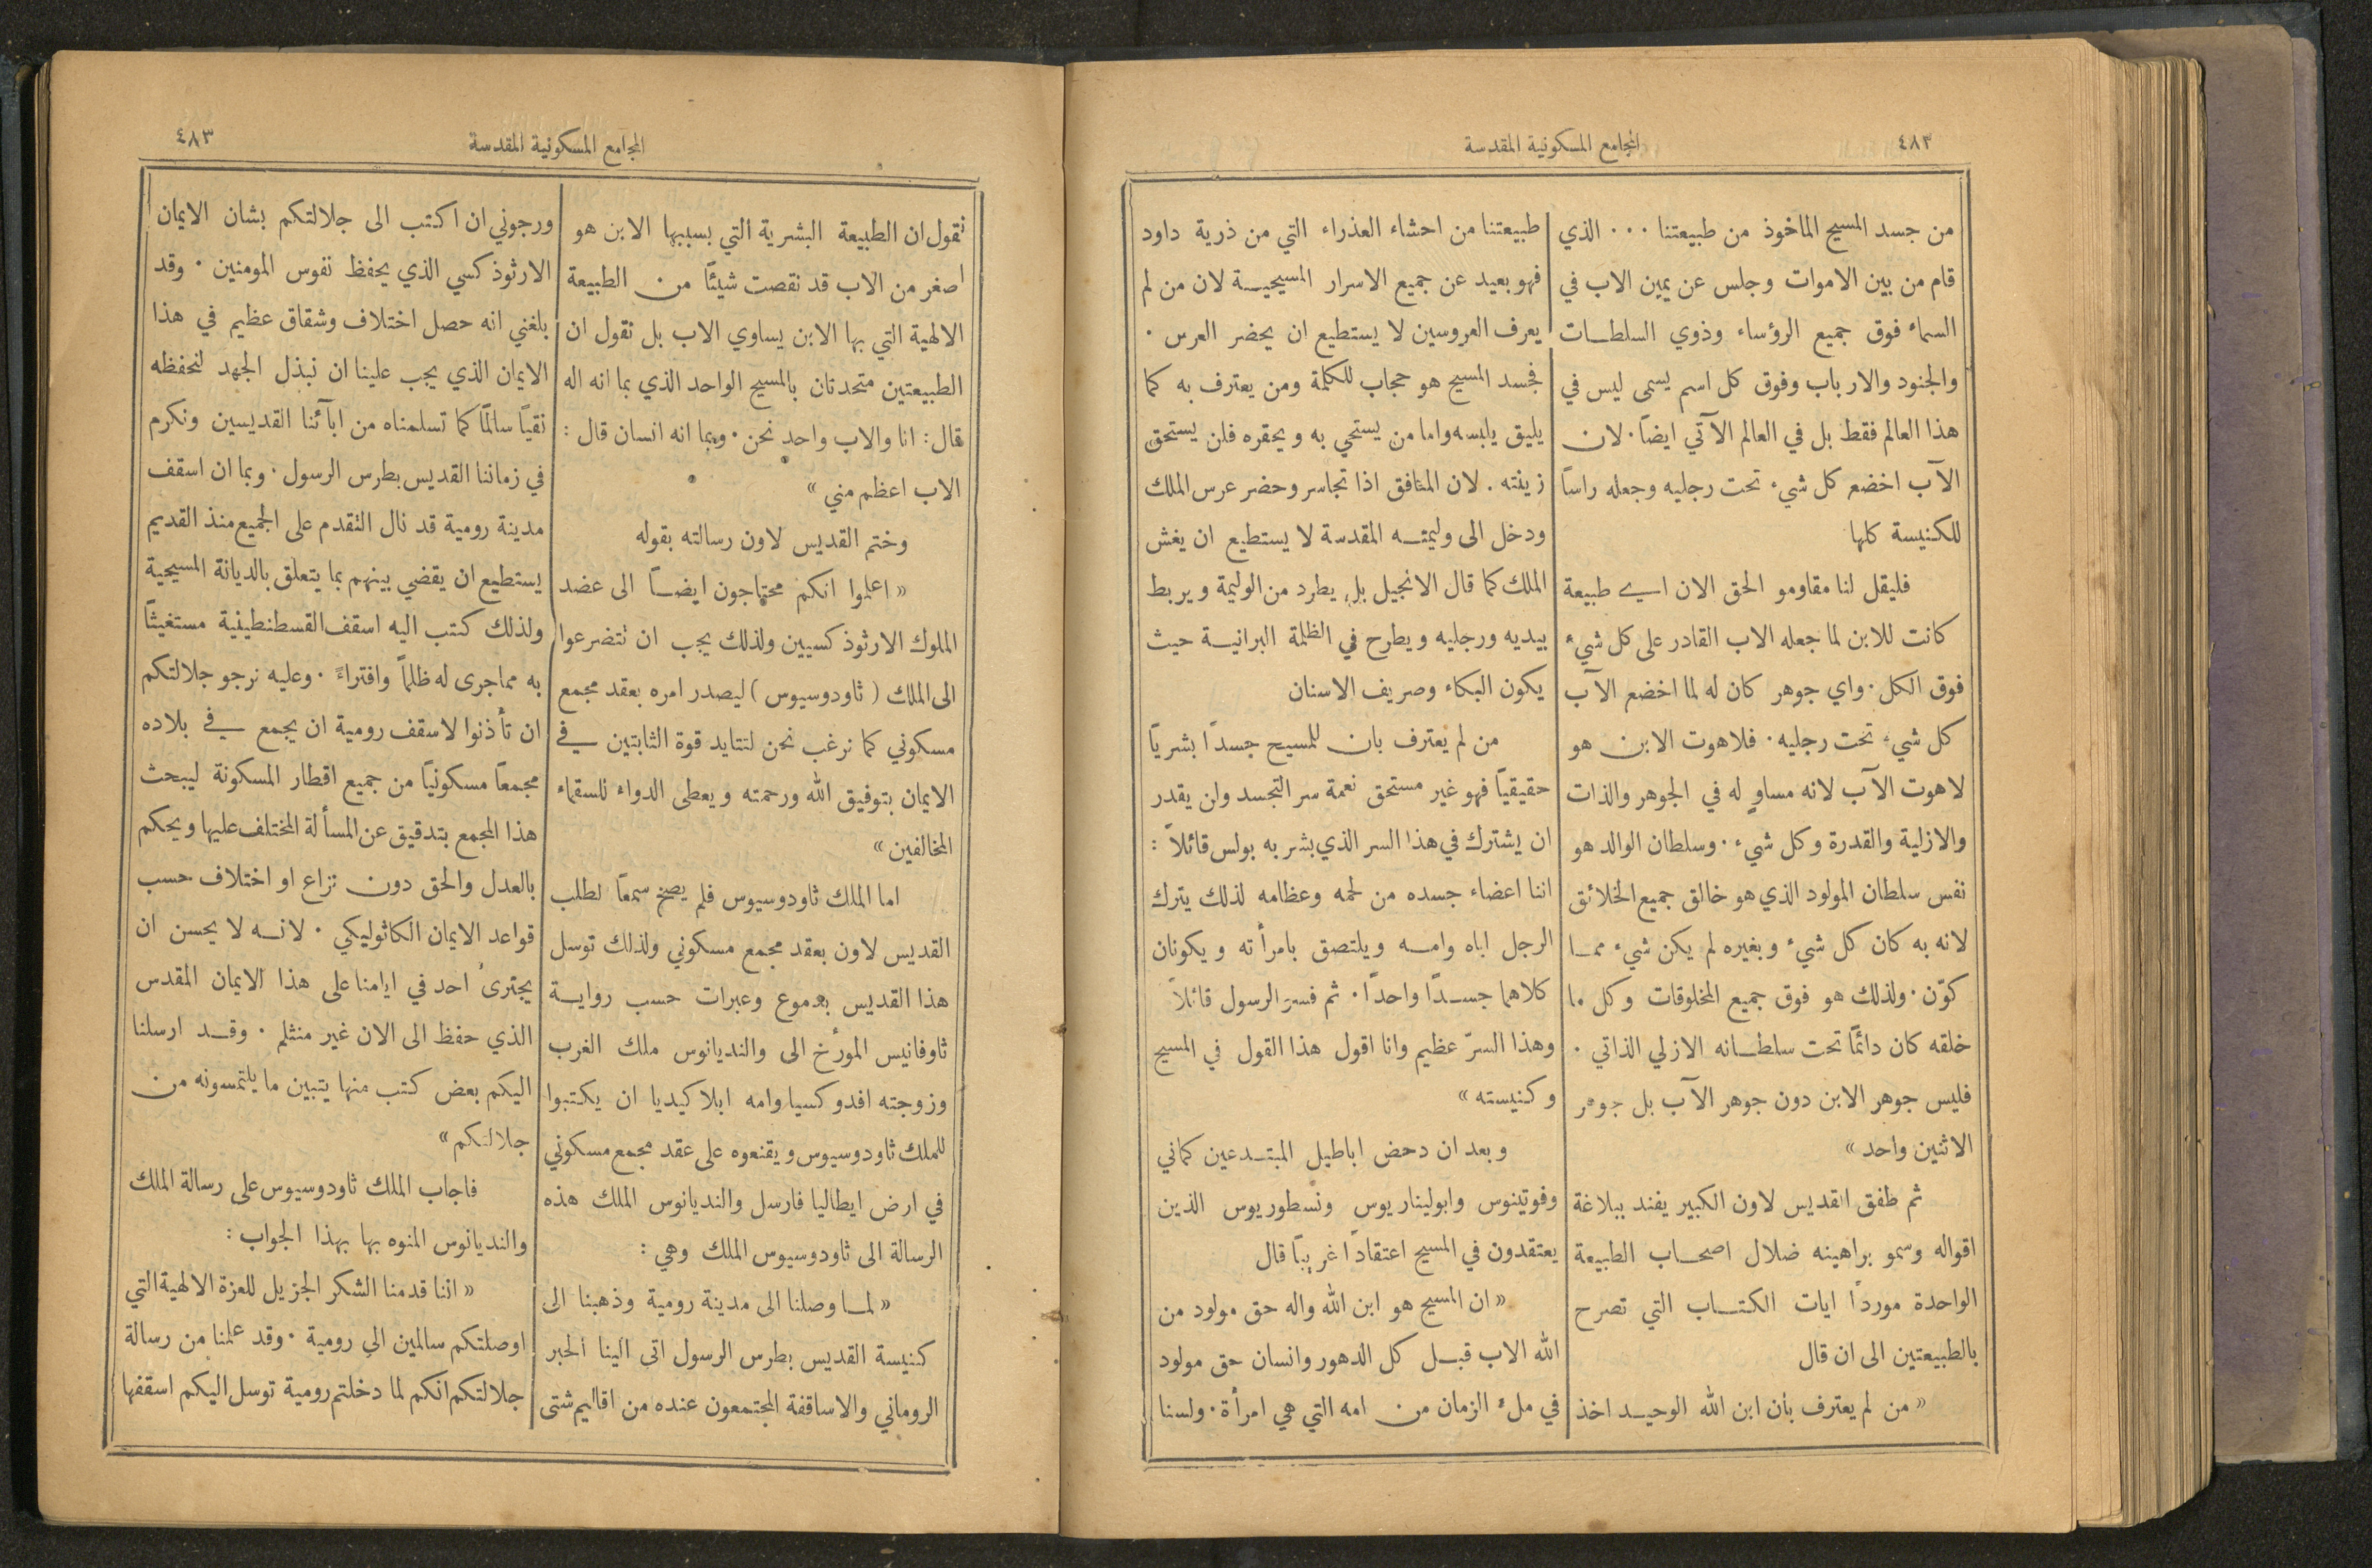 ٤٨٣
المجامع المسكونية المقدسة
من جسد المسيح الماخوذ من طبيعتنا ٠٠٠ الذي
قام من بين الاموات وجلس عن يمين الاب في
السماء فوق جميع الرؤساء وذوي السلطات
والجنود والارباب وفوق كل اسم يسمى ليس في
هذا العالم فقط بل في العالم الآتي ايضاً٠ لان
الآب اخضع كل شيء تحت رجليه وجعله راساً
للكنيسة كلها
فليقل لنا مقاومو الحق الان اي طبيعة
كانت للابن لما جعله الاب القادر على كل شيء
فوق الكل٠ واي جوهر كان له لما اخضع الآب
كل شيء تحت رجليه٠ فلاهوت الابن هو
لاهوت الآب لانه مساوٍ له في الجوهر والذات
والازلية والقدرة وكل شيء٠ وسلطان الوالد هو
نفس سلطان المولود الذي هو خالق جميع الخلائق
لانه به كان كل شيء وبغيره لم يكن شيء مما
كوّن٠ ولذلك هو فوق جميع المخلوقات وكل ما
خلقه كان دائمًا تحت سلطانه الازلي الذاتي ٠
فليس جوهر الابن دون جوهر الآب بل جوهر
الاثنين واحد »
ثم طفق القديس لاون الكبير يفند ببلاغة
اقواله وسمو براهينه ضلال اصحاب الطبيعة
الواحدة موردًا ايات الكتاب التي تصرح
بالطبيعتين الى ان قال
« من لم يعترف بأن ابن الله الوحيد اخذ
طبيعتنا من احشاء العذراء التي من ذرية داود
فهو بعيد عن جميع الاسرار المسيحية لان من لم
يعرف العروسين لا يستطيع ان يحضر العرس ٠
فجسد المسيح هو حجاب للكلمة ومن يعترف به كما
يليق يلبسه واما من يستحي به ويحقره فلن يستحق
زينته ٠ لان المنافق اذا تجاسر وحضر عرس الملك
ودخل الى وليمته المقدسة لا يستطيع ان يغش
الملك كما قال الانجيل بل يطرد من الوليمة ويربط
بيديه ورجليه ويطرح في الظلمة البرانية حيث
يكون البكاء وصريف الاسنان
من لم يعترف بان للمسيح جسدًا بشريًا
حقيقيًا فهو غير مستحق نعمة سر التجسد ولن يقدر
ان يشترك في هذا السر الذي بشر به بولس قائلاً :
اننا اعضاء جسده من لحمه وعظامه لذلك يترك
الرجل اباه وامه ويلتصق بامرأته ويكونان
كلاهما جسدًا واحدًا٠ ثم فسر الرسول قائلاً
وهذا السرّ عظيم وانا اقول هذا القول في المسيح
وكنيسته »
وبعد ان دحض اباطيل المبتدعين كماني
وفوتينوس وابوليناريوس ونسطوريوس الذين
يعتقدون في المسيح اعتقادًا غريبًا قال
« ان المسيح هو ابن الله واله حق مولود من
الله الاب قبل كل الدهور وانسان حق مولود
في ملء الزمان من امه التي هي امرأة٠ ولسنا
المجامع المسكونية المقدسة
٤٨٣
نقول ان الطبيعة البشرية التي بسببها الابن هو
اصغر من الاب قد نقصت شيئًا من الطبيعة
الالهية التي بها الابن يساوي الاب بل نقول ان
الطبيعتين متحدتان بالمسيح الواحد الذي بما انه اله
قال: انا والاب واحد نحن٠ وبما انه انسان قال :
الاب اعظم مني »
وختم القديس لاون رسالته بقوله
« اعلموا انكم محتاجون ايضاً الى عضد
الملوك الارثوذكسيين ولذلك يجب ان تتضرعوا
الى الملك ( ثاودوسيوس ) ليصدر امره بعقد مجمع
مسكوني كما نرغب نحن لتتايد قوة الثابتين في
الايمان بتوفيق الله ورحمته ويعطى الدواء للسقماء
المخالفين »
اما الملك ثاودوسيوس فلم يصخ سمعًا لطلب
القديس لاون بعقد مجمع مسكوني ولذلك توسل
هذا القديس بدموع وعبرات حسب رواية
ثاوفانيس المورّخ الى والنديانوس ملك الغرب
وزوجته افدوكسيا وامه ابلاكيديا ان يكتبوا
للملك ثاودوسيوس ويقنعوه على عقد مجمع مسكوني
في ارض ايطاليا فارسل والنديانوس الملك هذه
الرسالة الى ثاودوسيوس الملك وهي :
« لما وصلنا الى مدينة رومية وذهبنا الى
كنيسة القديس بطرس الرسول اتى الينا الحبر
الروماني والاساقفة المجتمعون عنده من اقاليم شتى
ورجوني ان اكتب الى جلالتكم بشان الايمان
الارثوذكسي الذي يحفظ نفوس المومنين ٠ وقد
بلغني انه حصل اختلاف وشقاق عظيم في هذا
الايمان الذي يجب علينا ان نبذل الجهد لنحفظه
نقيًا سالمًا كما تسلمناه من ابآئنا القديسين ونكرم
في زماننا القديس بطرس الرسول ٠ وبما ان اسقف
مدينة رومية قد نال التقدم على الجميع منذ القديم
يستطيع ان يقضي بينهم بما يتعلق بالديانة المسيحية
ولذلك كتب اليه اسقف القسطنطينية مستغيثًا
به مما جرى له ظلمًا وافتراءً ٠ وعليه نرجو جلالتكم
ان تأذنوا لاسقف رومية ان يجمع في بلاده
مجمعًا مسكونيًا من جميع اقطار المسكونة ليبحث
هذا المجمع بتدقيق عن المسألة المختلف عليها ويحكم
بالعدل والحق دون نزاع او اختلاف حسب
قواعد الايمان الكاثوليكي ٠ لانه لا يحسن ان
يجترئ احد في ايامنا على هذا الايمان المقدس
الذي حفظ الى الان غير منثلم ٠ وقد ارسلنا
اليكم بعض كتب منها يتبين ما يلتمسونه من
جلالتكم »
فاجاب الملك ثاودوسيوس على رسالة الملك
والنديانوس المنوه بها بهذا الجواب :
« اننا قدمنا الشكر الجزيل للعزة الالهية التي
اوصلتكم سالمين الى رومية ٠ وقد علمنا من رسالة
جلالتكم انكم لما دخلتم رومية توسل اليكم اسقفها